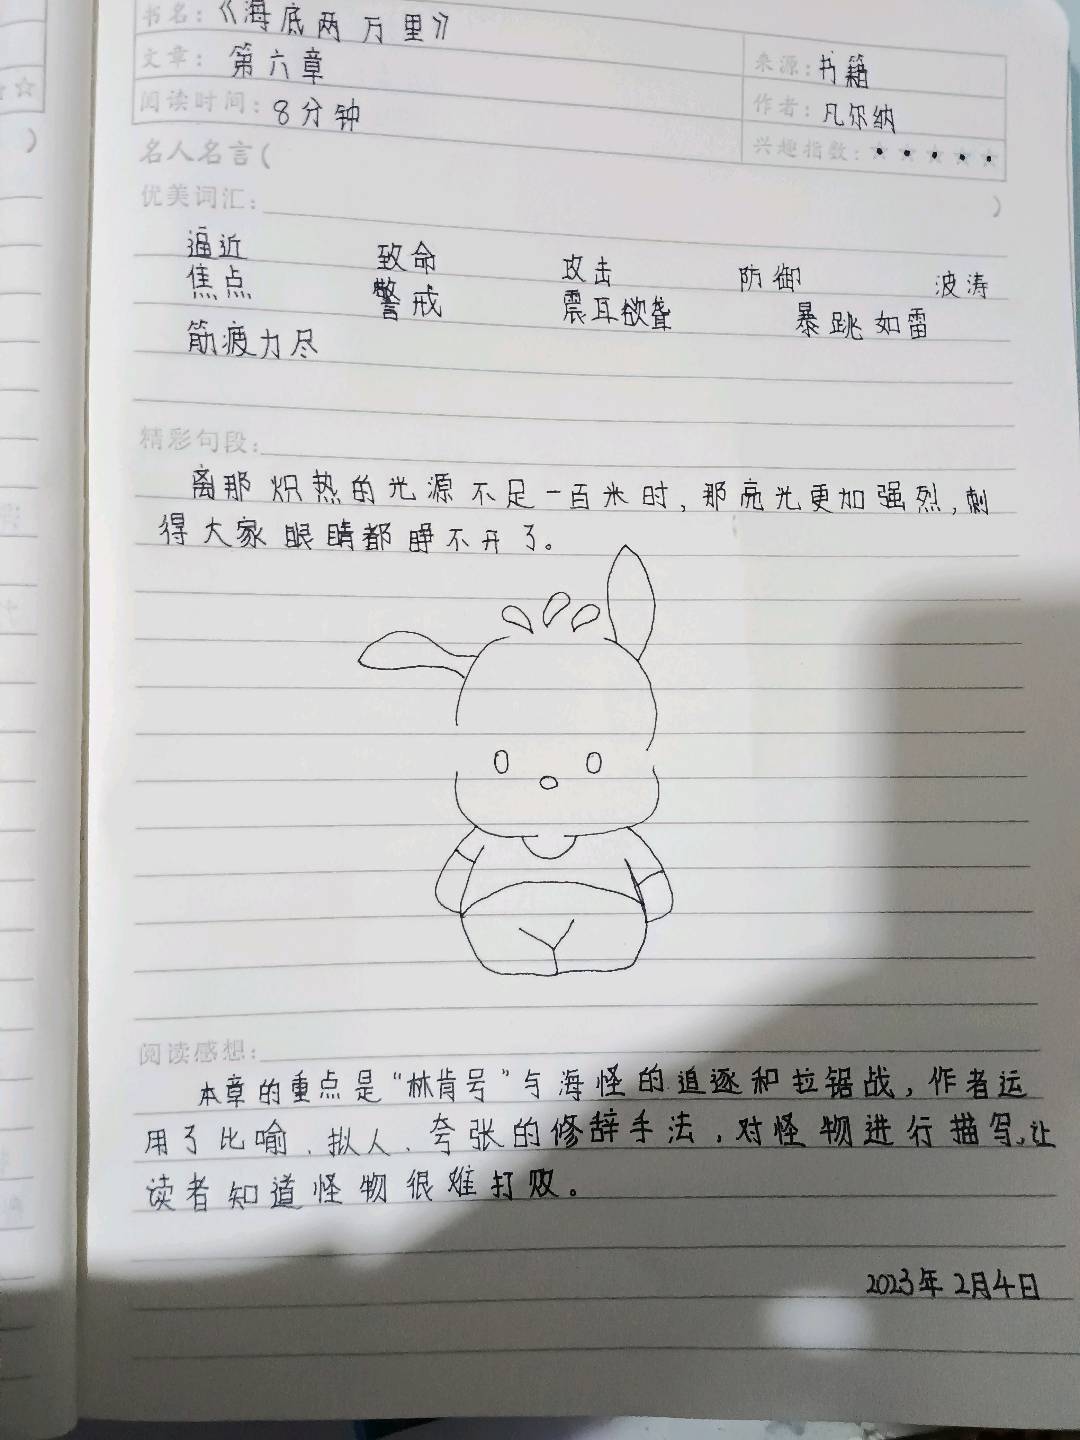 书名：《海底两万里》
文章：第六章
来源：书籍
阅读时间：8分钟
作者：凡尔纳
兴趣指数：
名人名言（
）
优美词汇：
逼近 致命 攻击 防御 波涛
焦点 警戒 震耳欲聋 暴跳如雷
筋疲力尽
精彩句段：
离那炽热的光源不足一百米时，那亮光更加强烈，刺
得大家眼睛都睁不开了。
阅读感想：
本章的重点是“林肯号”与海怪的追逐和拉锯战，作者运
用了比喻、拟人、夸张的修辞手法，对怪物进行描写。让
读者知道怪物很难打败。
2023年2月4日